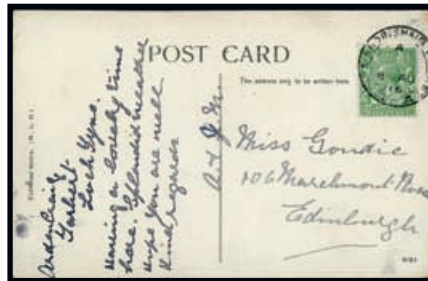 POST CARD
The address only to be written here.
Ardencraig
Tarbert
Loch Fyne.
Having a lovely time
here. Splendid weather
Hope you are well
Kind regards
Miss Goudie
106 Marchmont Road
Edinburgh